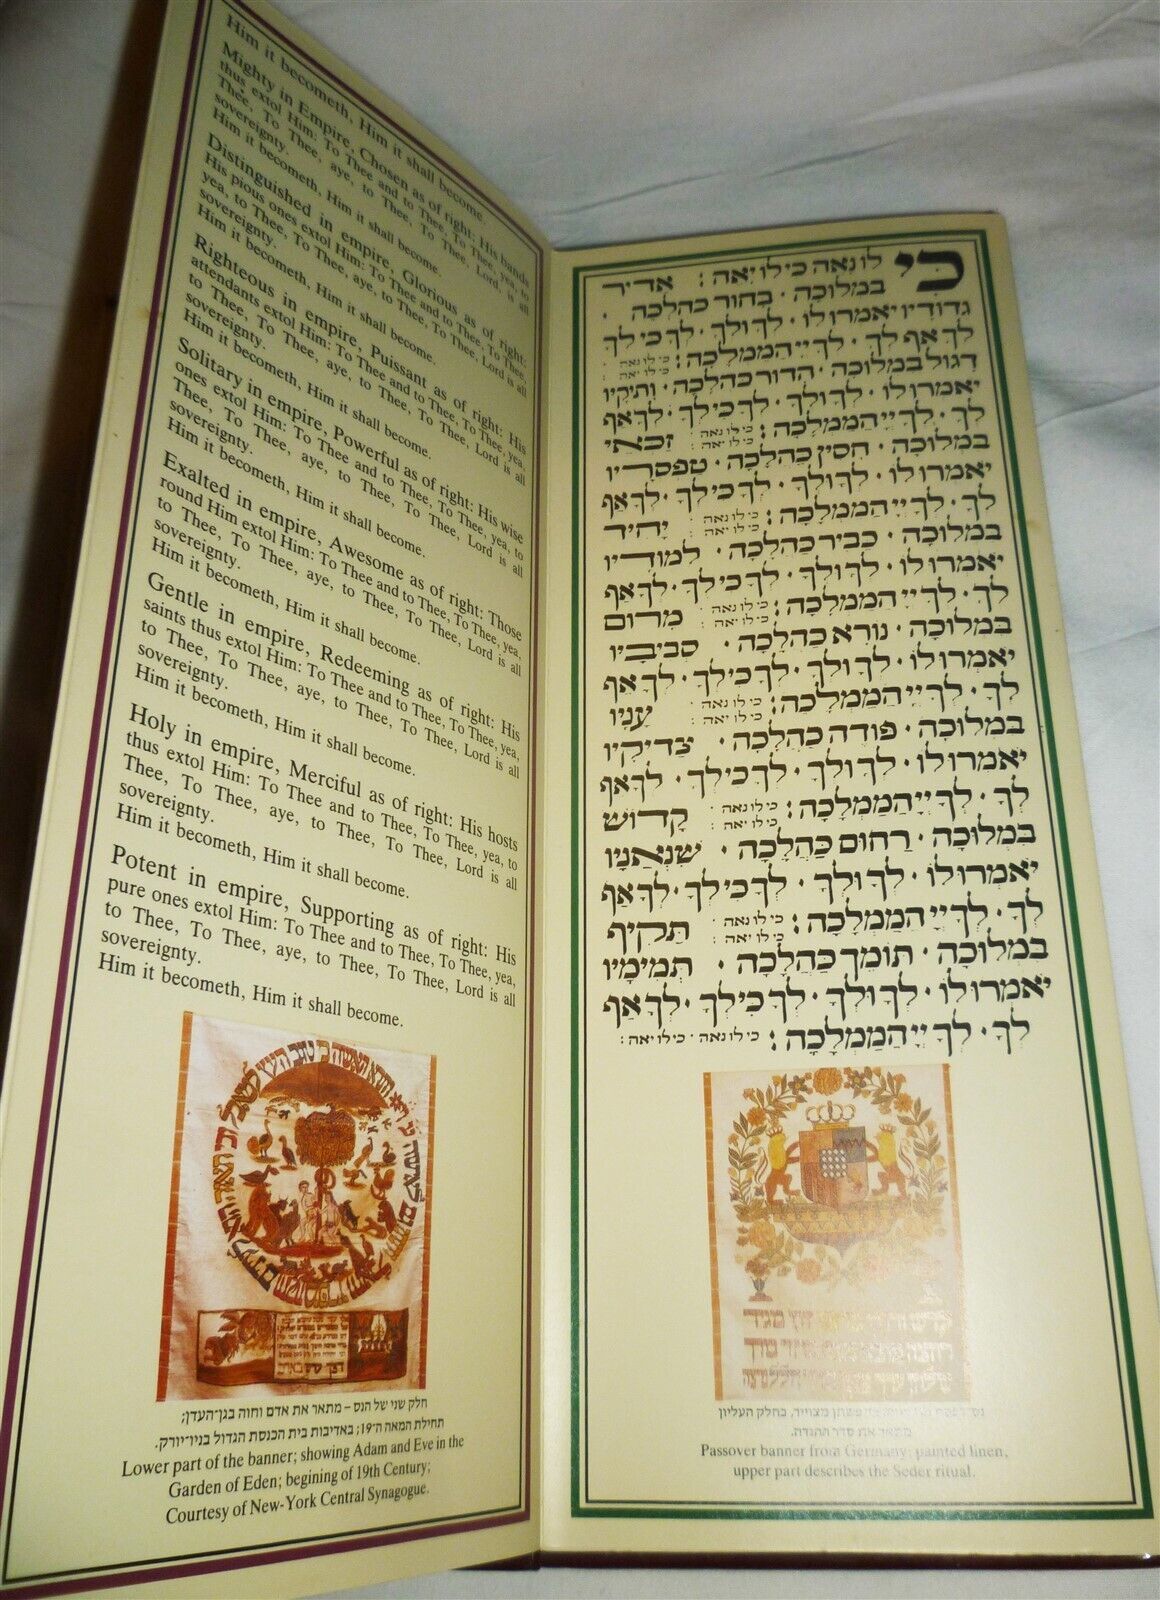 Him it becometh, Him it shall become.
Mighty in Empire, Chosen as of right: His bands
thus extol Him: To Thee and to Thee, To Thee, yea, to
Thee, To Thee, aye, to Thee, To Thee, Lord, is all
sovereignty.
Him it becometh, Him it shall become.
Distinguished in empire, Glorious as of right:
His pious ones extol Him: To Thee and to Thee, To Thee,
yea, to Thee, To Thee, aye, to Thee, To Thee, Lord is all
sovereignty.
Him it becometh, Him it shall become.
Righteous in empire, Puissant as of right: His
attendants extol Him: To Thee and to Thee, To Thee, yea,
to Thee, To Thee, aye, to Thee, To Thee, Lord is all
sovereignty.
Him it becometh, Him it shall become.
Solitary in empire, Powerful as of right: His wise
ones extol Him: To Thee and to Thee, To Thee, yea, to
Thee, To Thee, aye, to Thee, To Thee, Lord is all
sovereignty.
Him it becometh, Him it shall become.
Exalted in empire, Awesome as of right: Those
round Him extol Him: To Thee and to Thee, To Thee, yea,
to Thee, To Thee, aye, to Thee, To Thee, Lord is all
sovereignty.
Him it becometh, Him it shall become.
Gentle in empire, Redeeming as of right: His
saints thus extol Him: To Thee and to Thee, To Thee, yea,
to Thee, To Thee, aye, to Thee, To Thee, Lord is all
sovereignty.
Him it becometh, Him it shall become.
Holy in empire, Merciful as of right: His hosts
thus extol Him: To Thee and to Thee, To Thee, yea, to
Thee, To Thee, aye, to Thee, To Thee, Lord is all
sovereignty.
Him it becometh, Him it shall become.
Potent in empire, Supporting as of right: His
pure ones extol Him: To Thee and to Thee, To Thee, yea,
to Thee, To Thee, aye, to Thee, To Thee, Lord is all
sovereignty.
Him it becometh, Him it shall become.
חלק שני של הנס – מתאר את אדם וחוה בגן־העדן;
תחילת המאה ה־19; באדיבות בית הכנסת הגדול בניו־יורק.
Lower part of the banner; showing Adam and Eve in the
Garden of Eden; begining of 19th Century;
Courtesy of New-York Central Synagogue.
כי לו נאה כי לו יאה: אדיר
במלוכה · בחור כהלכה ·
גדודיו יאמרו לו · לך ולך · לך כי לך
לך אף לך · לך יי הממלכה: כי לו נאה כי לו יאה
דגול במלוכה · הדור כהלכה · ותיקיו
יאמרו לו · לך ולך · לך כי לך · לך אף
לך · לך יי הממלכה: כי לו נאה כי לו יאה: זכאי
במלוכה · חסין כהלכה · טפסריו
יאמרו לו · לך ולך · לך כי לך · לך אף
לך · לך יי הממלכה: כי לו נאה כי לו יאה: יחיד
במלוכה · כביר כהלכה · למודיו
יאמרו לו · לך ולך · לך כי לך · לך אף
לך · לך יי הממלכה: כי לו נאה כי לו יאה: מרום
במלוכה · נורא כהלכה · סביביו
יאמרו לו · לך ולך · לך כי לך · לך אף
לך · לך יי הממלכה: כי לו נאה כי לו יאה: עניו
במלוכה · פודה כהלכה · צדיקיו
יאמרו לו · לך ולך · לך כי לך · לך אף
לך · לך יי הממלכה: כי לו נאה כי לו יאה: קדוש
במלוכה · רחום כהלכה · שנאניו
יאמרו לו · לך ולך · לך כי לך · לך אף
לך · לך יי הממלכה: כי לו נאה כי לו יאה: תקיף
במלוכה · תומך כהלכה · תמימיו
יאמרו לו · לך ולך · לך כי לך · לך אף
לך · לך יי הממלכה: כי לו נאה · כי לו יאה:
מצוייר, בחלק העליון
מתאר את סדר ההגדה.
Passover banner from Germany; painted linen,
upper part describes the Seder ritual.